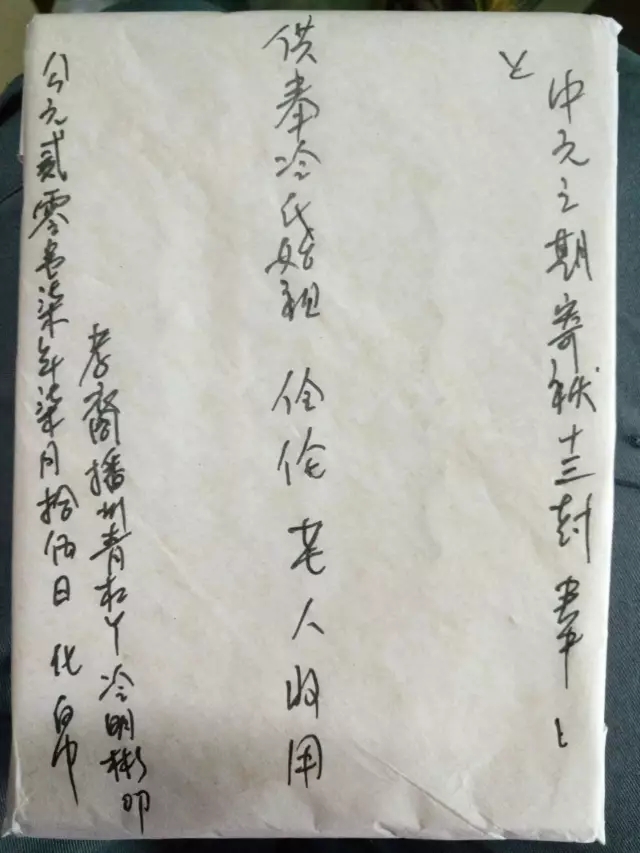 中元之期寄袱十三封奉上
供奉冷氏始祖 伶伦老人收用
孝裔播州青杠丫冷明彬叩
公元贰零壹柒年柒月拾伍日 化帛